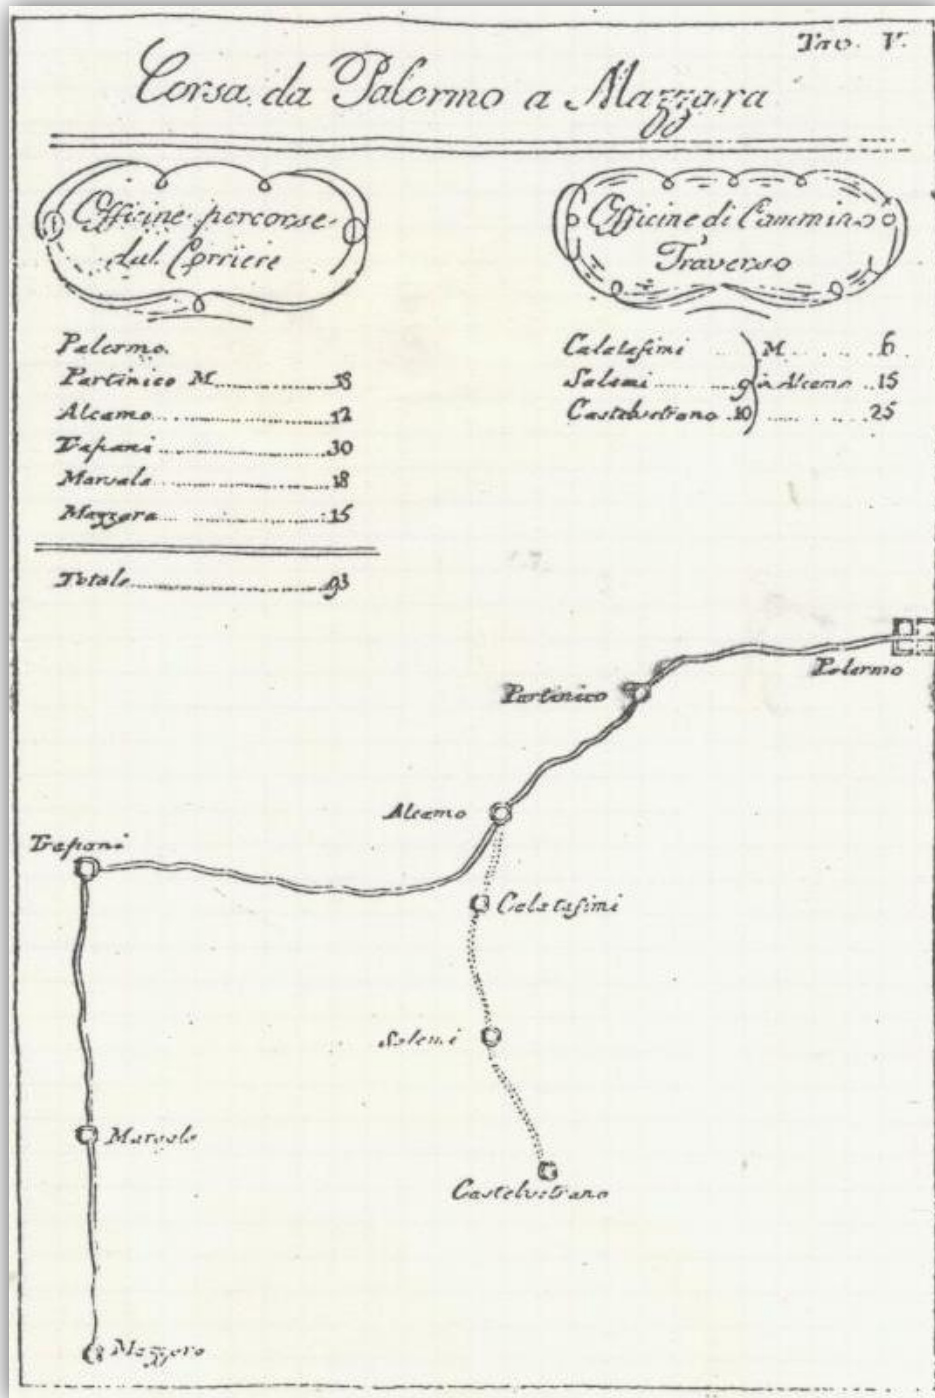 Tav. V.
Corsa da Palermo a Mazzara
Officine percorse
dal Corriere
Palermo.
Partinico M. 18
Alcamo 12
Trapani 30
Marsala 18
Mazzara 15
Totale 93
Officine di Cammino
Traverso
Calatafimi M 6
Salemi 9 in Alcamo 15
Castelvetrano 10 25
Palermo
Partinico
Alcamo
Trapani
Calatafimi
Salemi
Marsala
Castelvetrano
Mazzara